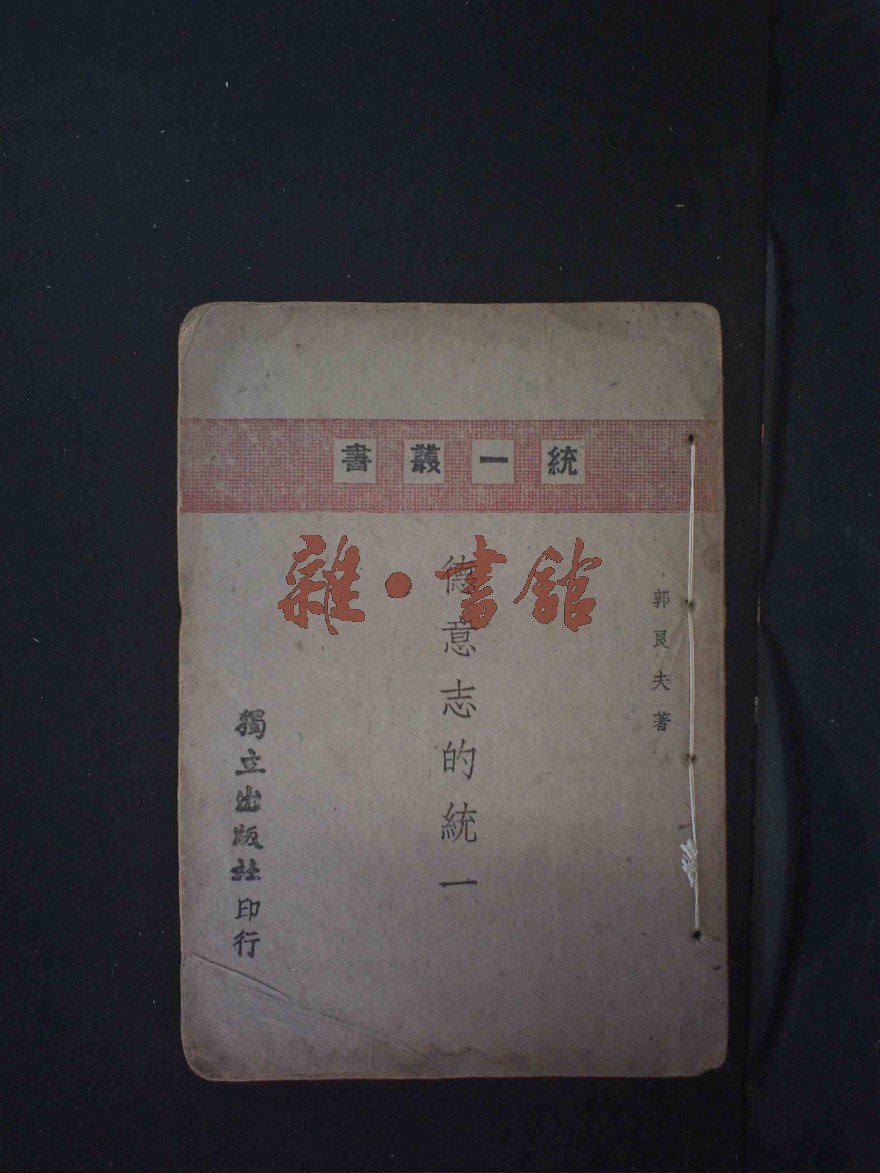 統一叢書
郭良夫著
德意志的統一
獨立出版社印行
雜·書館